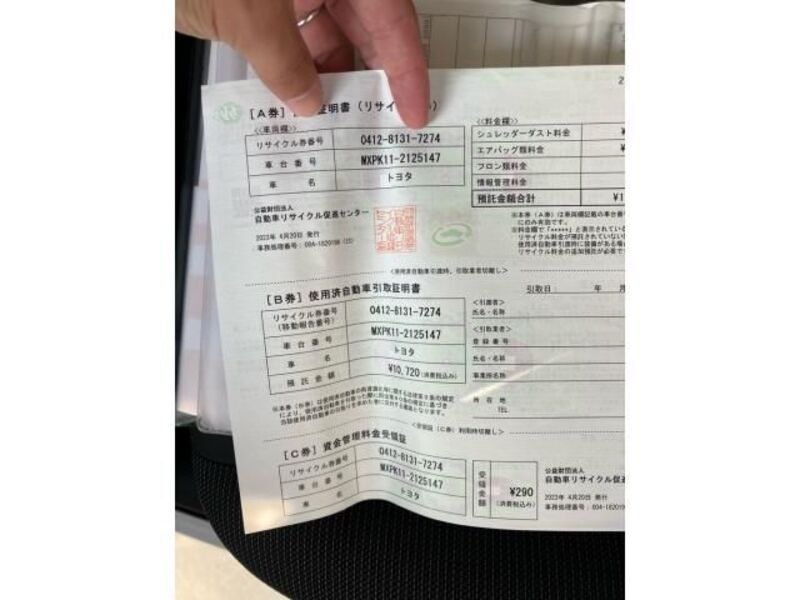 [A券] 証明書(リサイク
<<車両欄>>
リサイクル券番号 0412-8131-7274
車台番号 MXPK11-2125147
車名 トヨタ
公益財団法人
自動車リサイクル促進センター
2023年 4月20日 発行
<<料金欄>>
シュレッダーダスト料金 ¥
エアバッグ類料金 ¥
フロン類料金
情報管理料金
預託金額合計 ¥1
※本券(A券)は車両欄記載の車台番
にのみ有効です。
<使用済自動車引渡時、引取業者切離し>
[B券] 使用済自動車引取証明書
引取日: 年 月
リサイクル券番号
(移動報告番号) 0412-8131-7274
車台番号 MXPK11-2125147
車名 トヨタ
預託金額 ¥10,720(消費税込み)
<引渡者>
氏名・名称
<引取業者>
登録番号
氏名・名称
事業所名称
所在地
TEL
[C券] 資金管理料金受領証
リサイクル券番号 0412-8131-7274
車台番号 MXPK11-2125147
車名 トヨタ
受領金額 ¥290
(消費税込み)
公益財団法人
自動車リサイクル促進
2023年 4月20日 発行